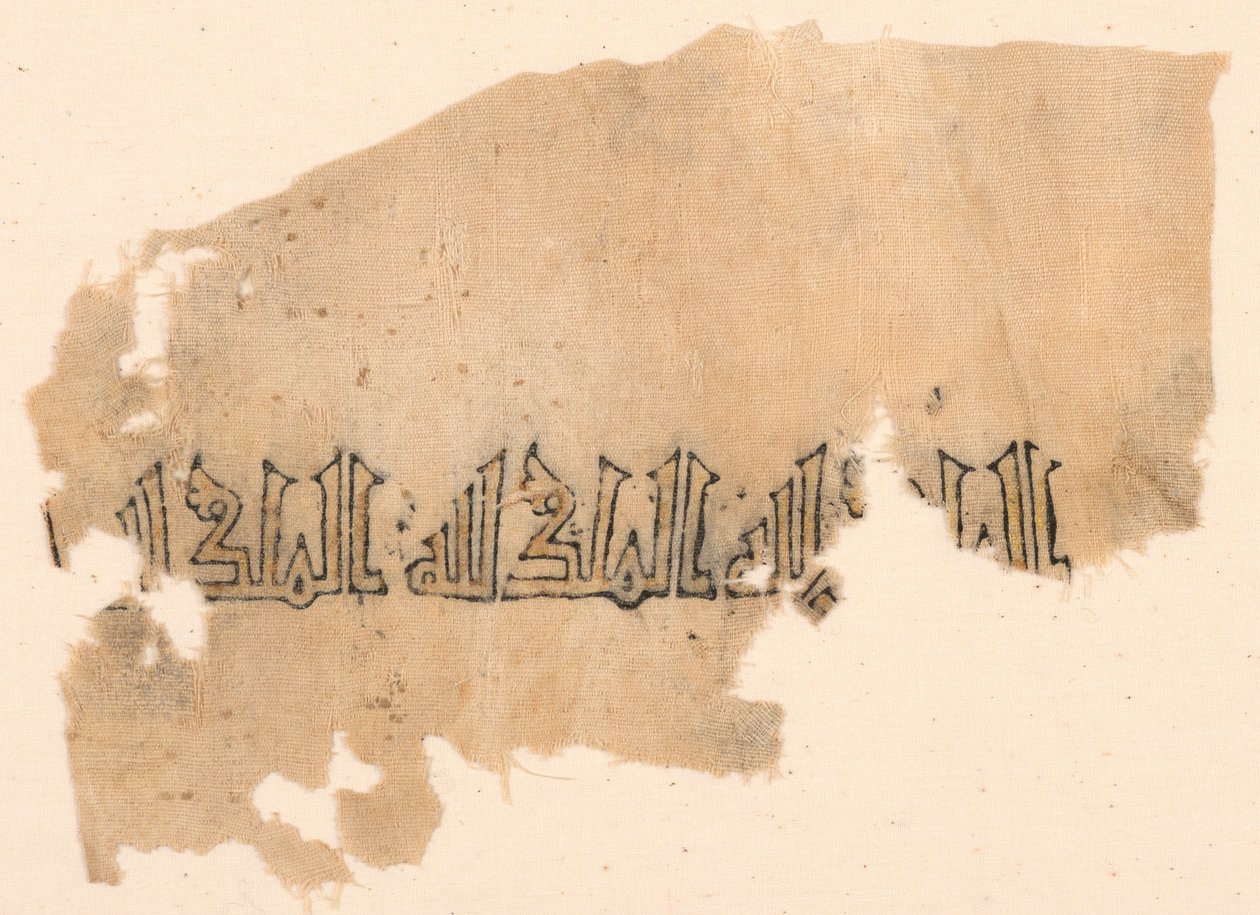 الملك لله الملك لله الملك لله